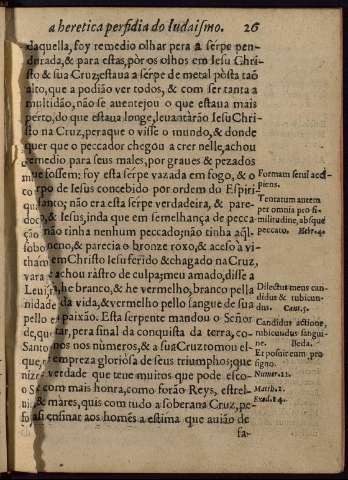 a heretica perfidia do Iudaismo. 26
daquella, foy remedio olhar pera a serpe pen-
durada, & para estas, pòr os olhos em Iesu Chri-
sto & sua Cruz; estaua a serpe de metal pòsta taõ
alto, que a podião ver todos, & com ser tanta a
multidão, não se auentejou o que estaua mais
perto, do que estaua longe, leuantarão Iesu Chri-
sto na Cruz, pera que o visse o mundo, & donde
quer que o peccador chegou a crer nelle, achou
remedio para seus males, por graues & pezados
que fossem: foy esta serpe vazada em fogo, & o
corpo de Iesus concebido por ordem do Espiri-
santo; não era esta serpe verdadeira, & pare-
& Iesus, inda que em semelhança de pecca-
não tinha nenhum peccado; não tinha aq̃l-
neno, & parecia o bronze roxo, & aceso à vi-
em Christo Iesu ferido & chagado na Cruz,
achou rastro de culpa; meu amado, disse a
he branco, & he vermelho, branco pella
da vida, & vermelho pello sangue de sua
paixão. Esta serpente mandou o Señor
tar, pera sinal da conquista da terra, co-
nos nos números, & a sua Cruz tomou el-
empreza gloriosa de seus triumphos; que
verdade que teve muitos que pode esco-
com mais honra, como forão Reys, estrel-
& màres, quis com tudo a soberana Cruz, pe-
ensinar aos homẽs a estima que auião de
fa-
Formam serui acci-
piens.
Tentatum autem
per omnia pro si-
militudine, absque
peccato. Hebr. 4.
Dilectus meus can-
didus & rubicun-
dus. Cant. 5.
Candidus actione,
rubicundus sangui-
ne. Beda.
Et posuit eum pro
signo.
Numer. 21.
Matth. 2.
Exod. 14.